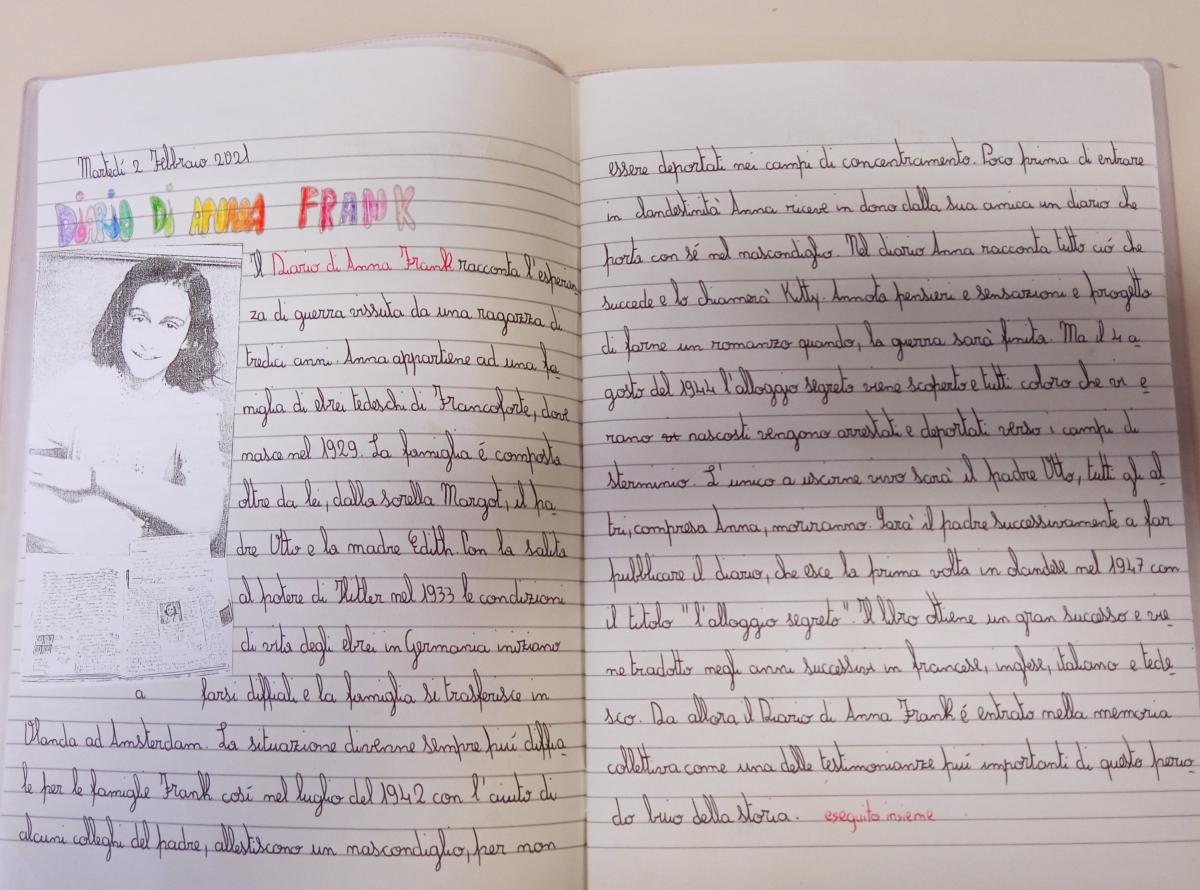 Martedí 2 Febbraio 2021
DIARIO DI ANNA FRANK
Il Diario di Anna Frank racconta l'esperien
za di guerra vissuta da una ragazza di
tredici anni. Anna appartiene ad una fa
miglia di ebrei tedeschi di Francoforte, dove
nasce nel 1929. La famiglia é composta
oltre da lei, dalla sorella Margot, il pa
dre Otto e la madre Edith. Con la salita
al potere di Hitler nel 1933 le condizioni
di vita degli ebrei in Germania iniziano
a farsi difficili e la famiglia si trasferisce in
Olanda ad Amsterdam. La situazione divenne sempre piuí diffici
le per le famiglie Frank cosí nel luglio del 1942 con l'aiuto di
alcuni colleghi del padre, allestiscono un nascondiglio, per non
essere deportati nei campi di concentramento. Poco prima di entrare
in clandestinità Anna riceve in dono dalla sua amica un diario che
porta con sé nel nascondiglio. Nel diario Anna racconta tutto ció che
succede e lo chiamerà Kitty. Annota pensieri e sensazioni e progetta
di farne un romanzo quando, la guerra sarà finita. Ma il 4 a
gosto del 1944 l'alloggio segreto viene scoperto e tutti coloro che vi e
rano nascosti vengono arrestati e deportati verso i campi di
sterminio. L'unico a uscirne vivo sarà il padre Otto, tutti gli al
tri, compresa Anna, moriranno. Sarà il padre successivamente a far
pubblicare il diario, che esce la prima volta in olandese nel 1947 con
il titolo "l'alloggio segreto". Il libro ottiene un gran successo e vie
ne tradotto negli anni successivi in francese, inglese, italiano e tede
sco. Da allora il Diario di Anna Frank é entrato nella memoria
collettiva come una delle testimonianze piuí importanti di questo perio
do buio della storia. eseguito insieme